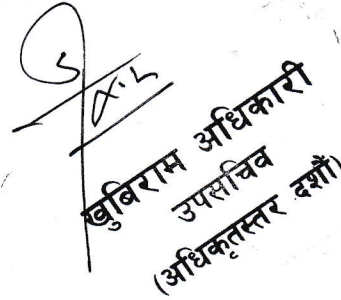 खुबिराम अधिकारी
उपसचिव
(अधिकृतस्तर दशौं)